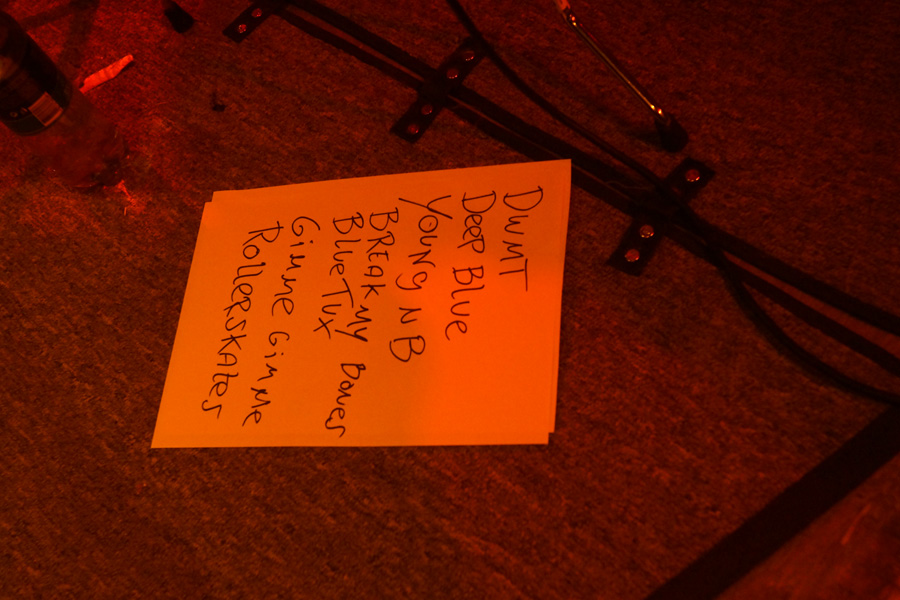 DWMT
DEEP BLUE
YOUNG N B
BREAK MY BONES
BLUE TUX
GiMME GiMME
ROLLERSKATES